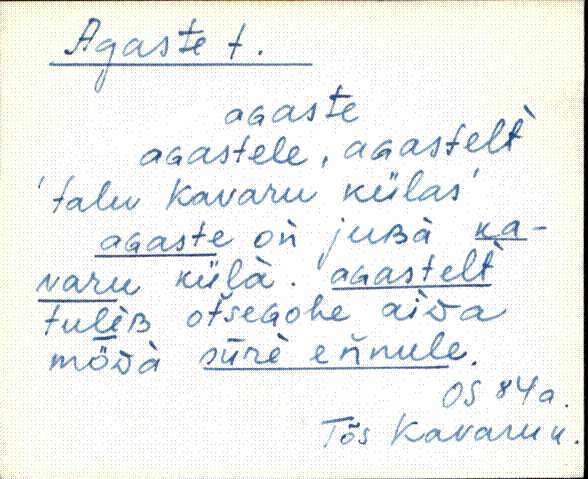 Agaste t.
aɢaste
aɢastele, aɢastelt̀
'talu Kavaru külas'
aɢaste oǹ juʙà ka-
varu külà. aɢastelt̀
tulèʙ otsekohe aiᴅa
mö̀ᴅà sūrè en̆nule.
OS 84 a.
Tõs Kavaru k.